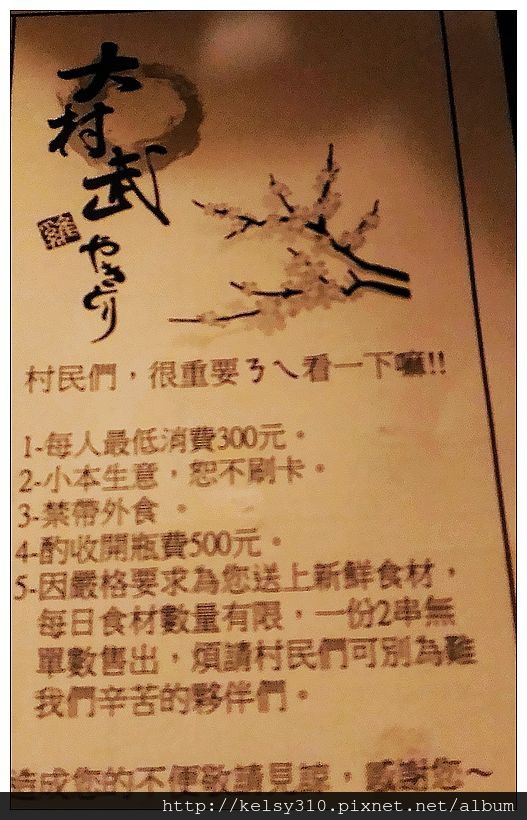 大村武
雞
やきとり
村民們，很重要ㄋㄟ看一下嘛!!
1-每人最低消費300元。
2-小本生意，恕不刷卡。
3-禁帶外食 。
4-酌收開瓶費500元。
5-因嚴格要求為您送上新鮮食材，
每日食材數量有限，一份2串無
單數售出，煩請村民們可別為難
我們辛苦的夥伴們。
造成您的不便敬請見諒，感謝您～
http://kelsy310.pixnet.net/album